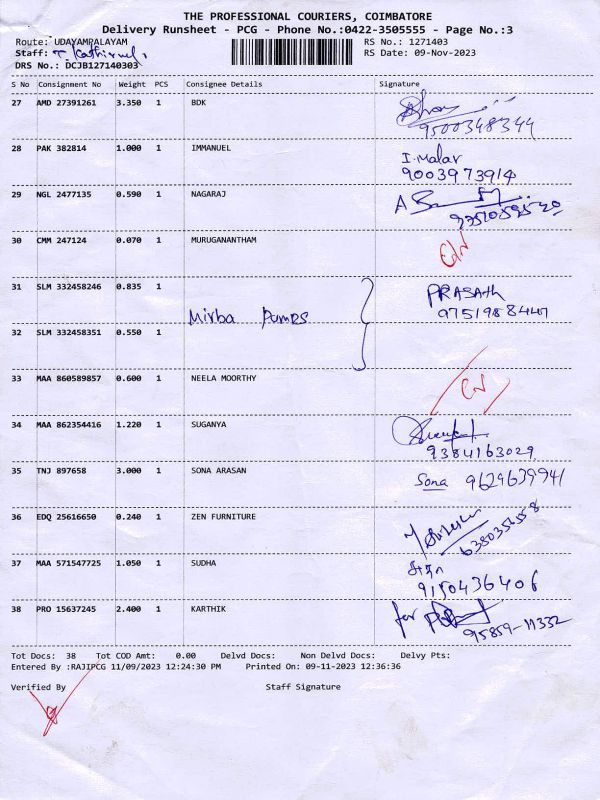 THE PROFESSIONAL COURIERS, COIMBATORE
Delivery Runsheet - PCG - Phone No.:0422-3505555 - Page No.:3
Route: UDAYAMPALAYAM RS No.: 1271403
Staff: RS Date: 09-Nov-2023
DRS No.: DCJB127140303
S No Consignment No Weight PCS Consignee Details Signature
27 AMD 27391261 3.350 1 BDK
9500348344
28 PAK 382814 1.000 1 IMMANUEL I. Malar
9003973914
29 NGL 2477135 0.590 1 NAGARAJ
30 CMM 247124 0.070 1 MURUGANANTHAM
31 SLM 332458246 0.835 1 PRASAth
Mirba Pumps
32 SLM 332458351 0.550 1
33 MAA 860589857 0.600 1 NEELA MOORTHY
34 MAA 862354416 1.220 1 SUGANYA
9384163029
35 TNJ 897658 3.000 1 SONA ARASAN Sona 9629639941
36 EDQ 25616650 0.240 1 ZEN FURNITURE
6380356558
37 MAA 571547725 1.050 1 SUDHA
9150436406
38 PRO 15637245 2.400 1 KARTHIK for
95859-11332
Tot Docs: 38 Tot COD Amt: 0.00 Delvd Docs: Non Delvd Docs: Delvy Pts:
Entered By :RAJIPCG 11/09/2023 12:24:30 PM Printed On: 09-11-2023 12:36:36
Verified By Staff Signature